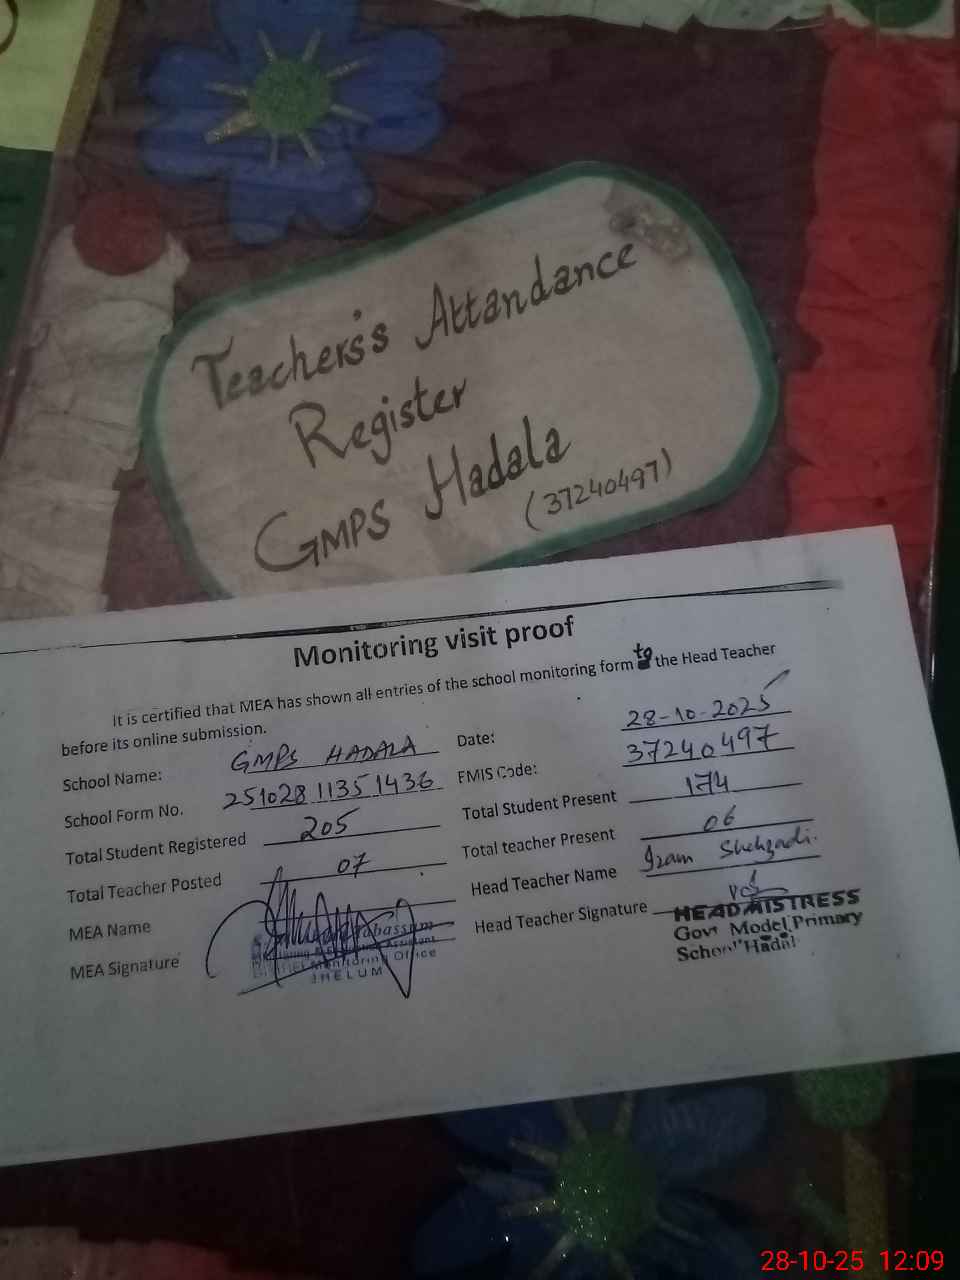 Teachers's Attandance
Register
GMPS Hadala
(37240497)
Monitoring visit proof
It is certified that MEA has shown all entries of the school monitoring form to the Head Teacher
before its online submission.
School Name: GMPS HADALA Date: 28-10-2025
School Form No. 251028 1135 1436 FMIS Code: 37240497
Total Student Registered 205 Total Student Present 174
Total Teacher Posted 07 Total teacher Present 06
MEA Name Head Teacher Name Iram Shehzadi.
MEA Signature Head Teacher Signature
Tabassum
Monitoring & Assistant
District Monitoring Office
JHELUM
HEADMISTRESS
Govt Model Primary
School Hadala
28-10-25 12:09